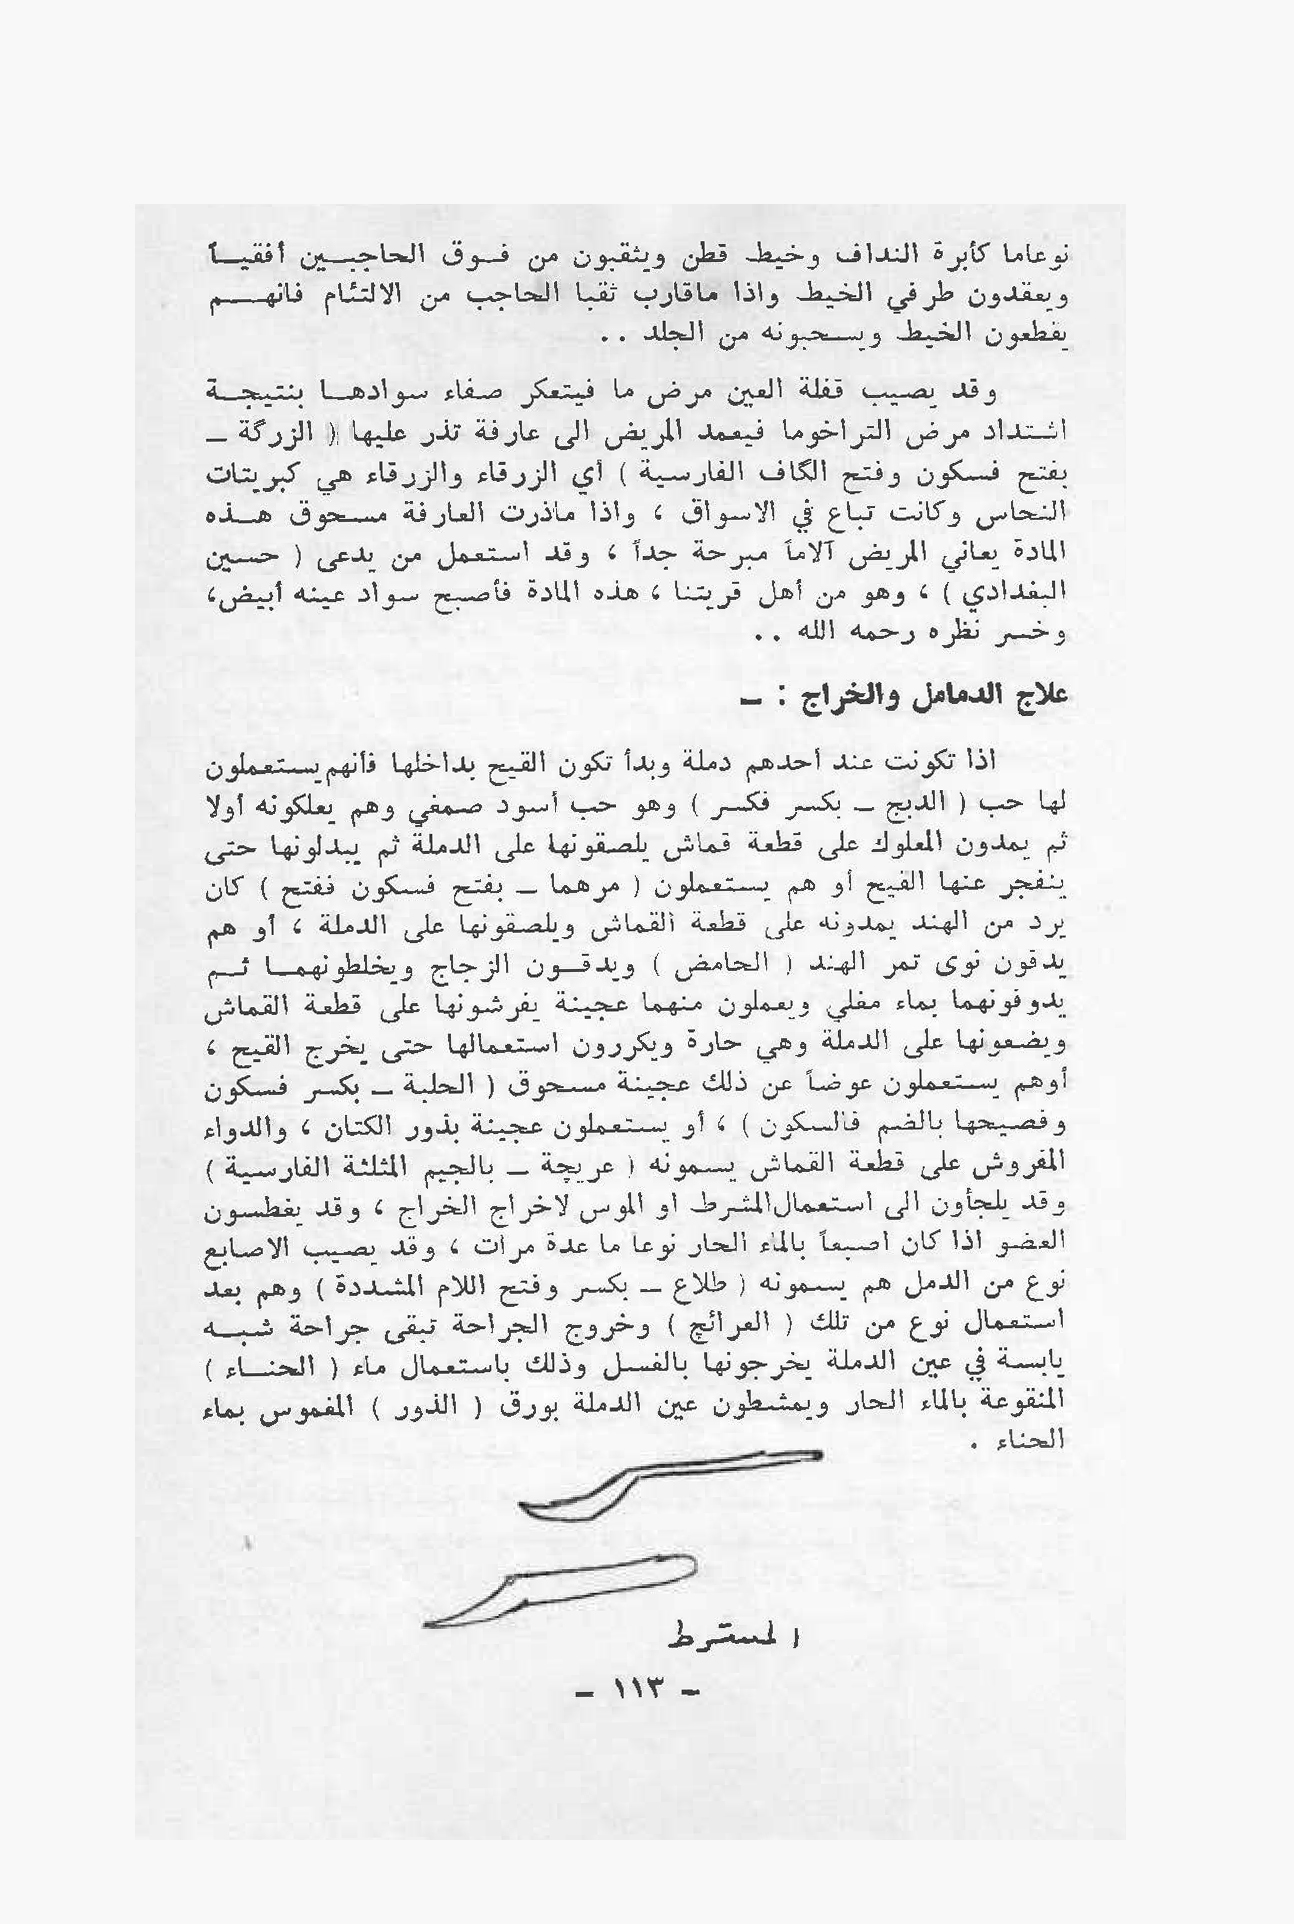 نوعاما كأبرة النداف وخيط قطن ويثقبون من فوق الحاجبين أفقياً
ويعقدون طرفي الخيط واذا ماقارب ثقبا الحاجب من الالتئام فانهم
يقطعون الخيط ويسحبونه من الجلد . .
وقد يصيب قفلة العين مرض ما فيتعكر صفاء سوادها بنتيجة
اشتداد مرض التراخوما فيعمد المريض الى عارفة تذر عليها ( الزرگة ــ
بفتح فسكون وفتح الگاف الفارسية ) أي الزرقاء والزرقاء هي كبريتات
النحاس وكانت تباع في الاسواق ، واذا ماذرت العارفة مسحوق هذه
المادة يعاني المريض آلاماً مبرحة جداً ، وقد استعمل من يدعى ( حسين
البغدادي ) ، وهو من أهل قريتنا ، هذه المادة فأصبح سواد عينه أبيض،
وخسر نظره رحمه الله . .
علاج الدمامل والخراج : ــ
اذا تكونت عند أحدهم دملة وبدأ تكون القيح بداخلها فأنهم يستعملون
لها حب ( الدبج ــ بكسر فكسر ) وهو حب أسود صمغي وهم يعلكونه أولا
ثم يمدون المعلوك على قطعة قماش يلصقونها على الدملة ثم يبدلونها حتى
ينفجر عنها القيح أو هم يستعملون ( مرهما ــ بفتح فسكون ففتح ) كان
يرد من الهند يمدونه على قطعة القماش ويلصقونها على الدملة ، أو هم
يدقون نوى تمر الهند ( الحامض ) ويدقون الزجاج ويخلطونهما ثم
يدوفونهما بماء مغلي ويعملون منهما عجينة يفرشونها على قطعة القماش
ويضعونها على الدملة وهي حارة ويكررون استعمالها حتى يخرج القيح ،
أوهم يستعملون عوضاً عن ذلك عجينة مسحوق ( الحلبة ــ بكسر فسكون
وفصيحها بالضم فالسكون ) ، أو يستعملون عجينة بذور الكتان ، والدواء
المفروش على قطعة القماش يسمونه ( عريچة ــ بالجيم المثلثة الفارسية )
وقد يلجأون الى استعمال المشرط او الموس لاخراج الخراج ، وقد يغطسون
العضو اذا كان اصبعاً بالماء الحار نوعا ما عدة مرات ، وقد يصيب الاصابع
نوع من الدمل هم يسمونه ( طلاع ــ بكسر وفتح اللام المشددة ) وهم بعد
استعمال نوع من تلك ( العرائچ ) وخروج الجراحة تبقى جراحة شبه
يابسة في عين الدملة يخرجونها بالغسل وذلك باستعمال ماء ( الحناء )
المنقوعة بالماء الحار ويمشطون عين الدملة بورق ( الذور ) المغموس بماء
الحناء .
المشرط
ــ ١١٣ ــ